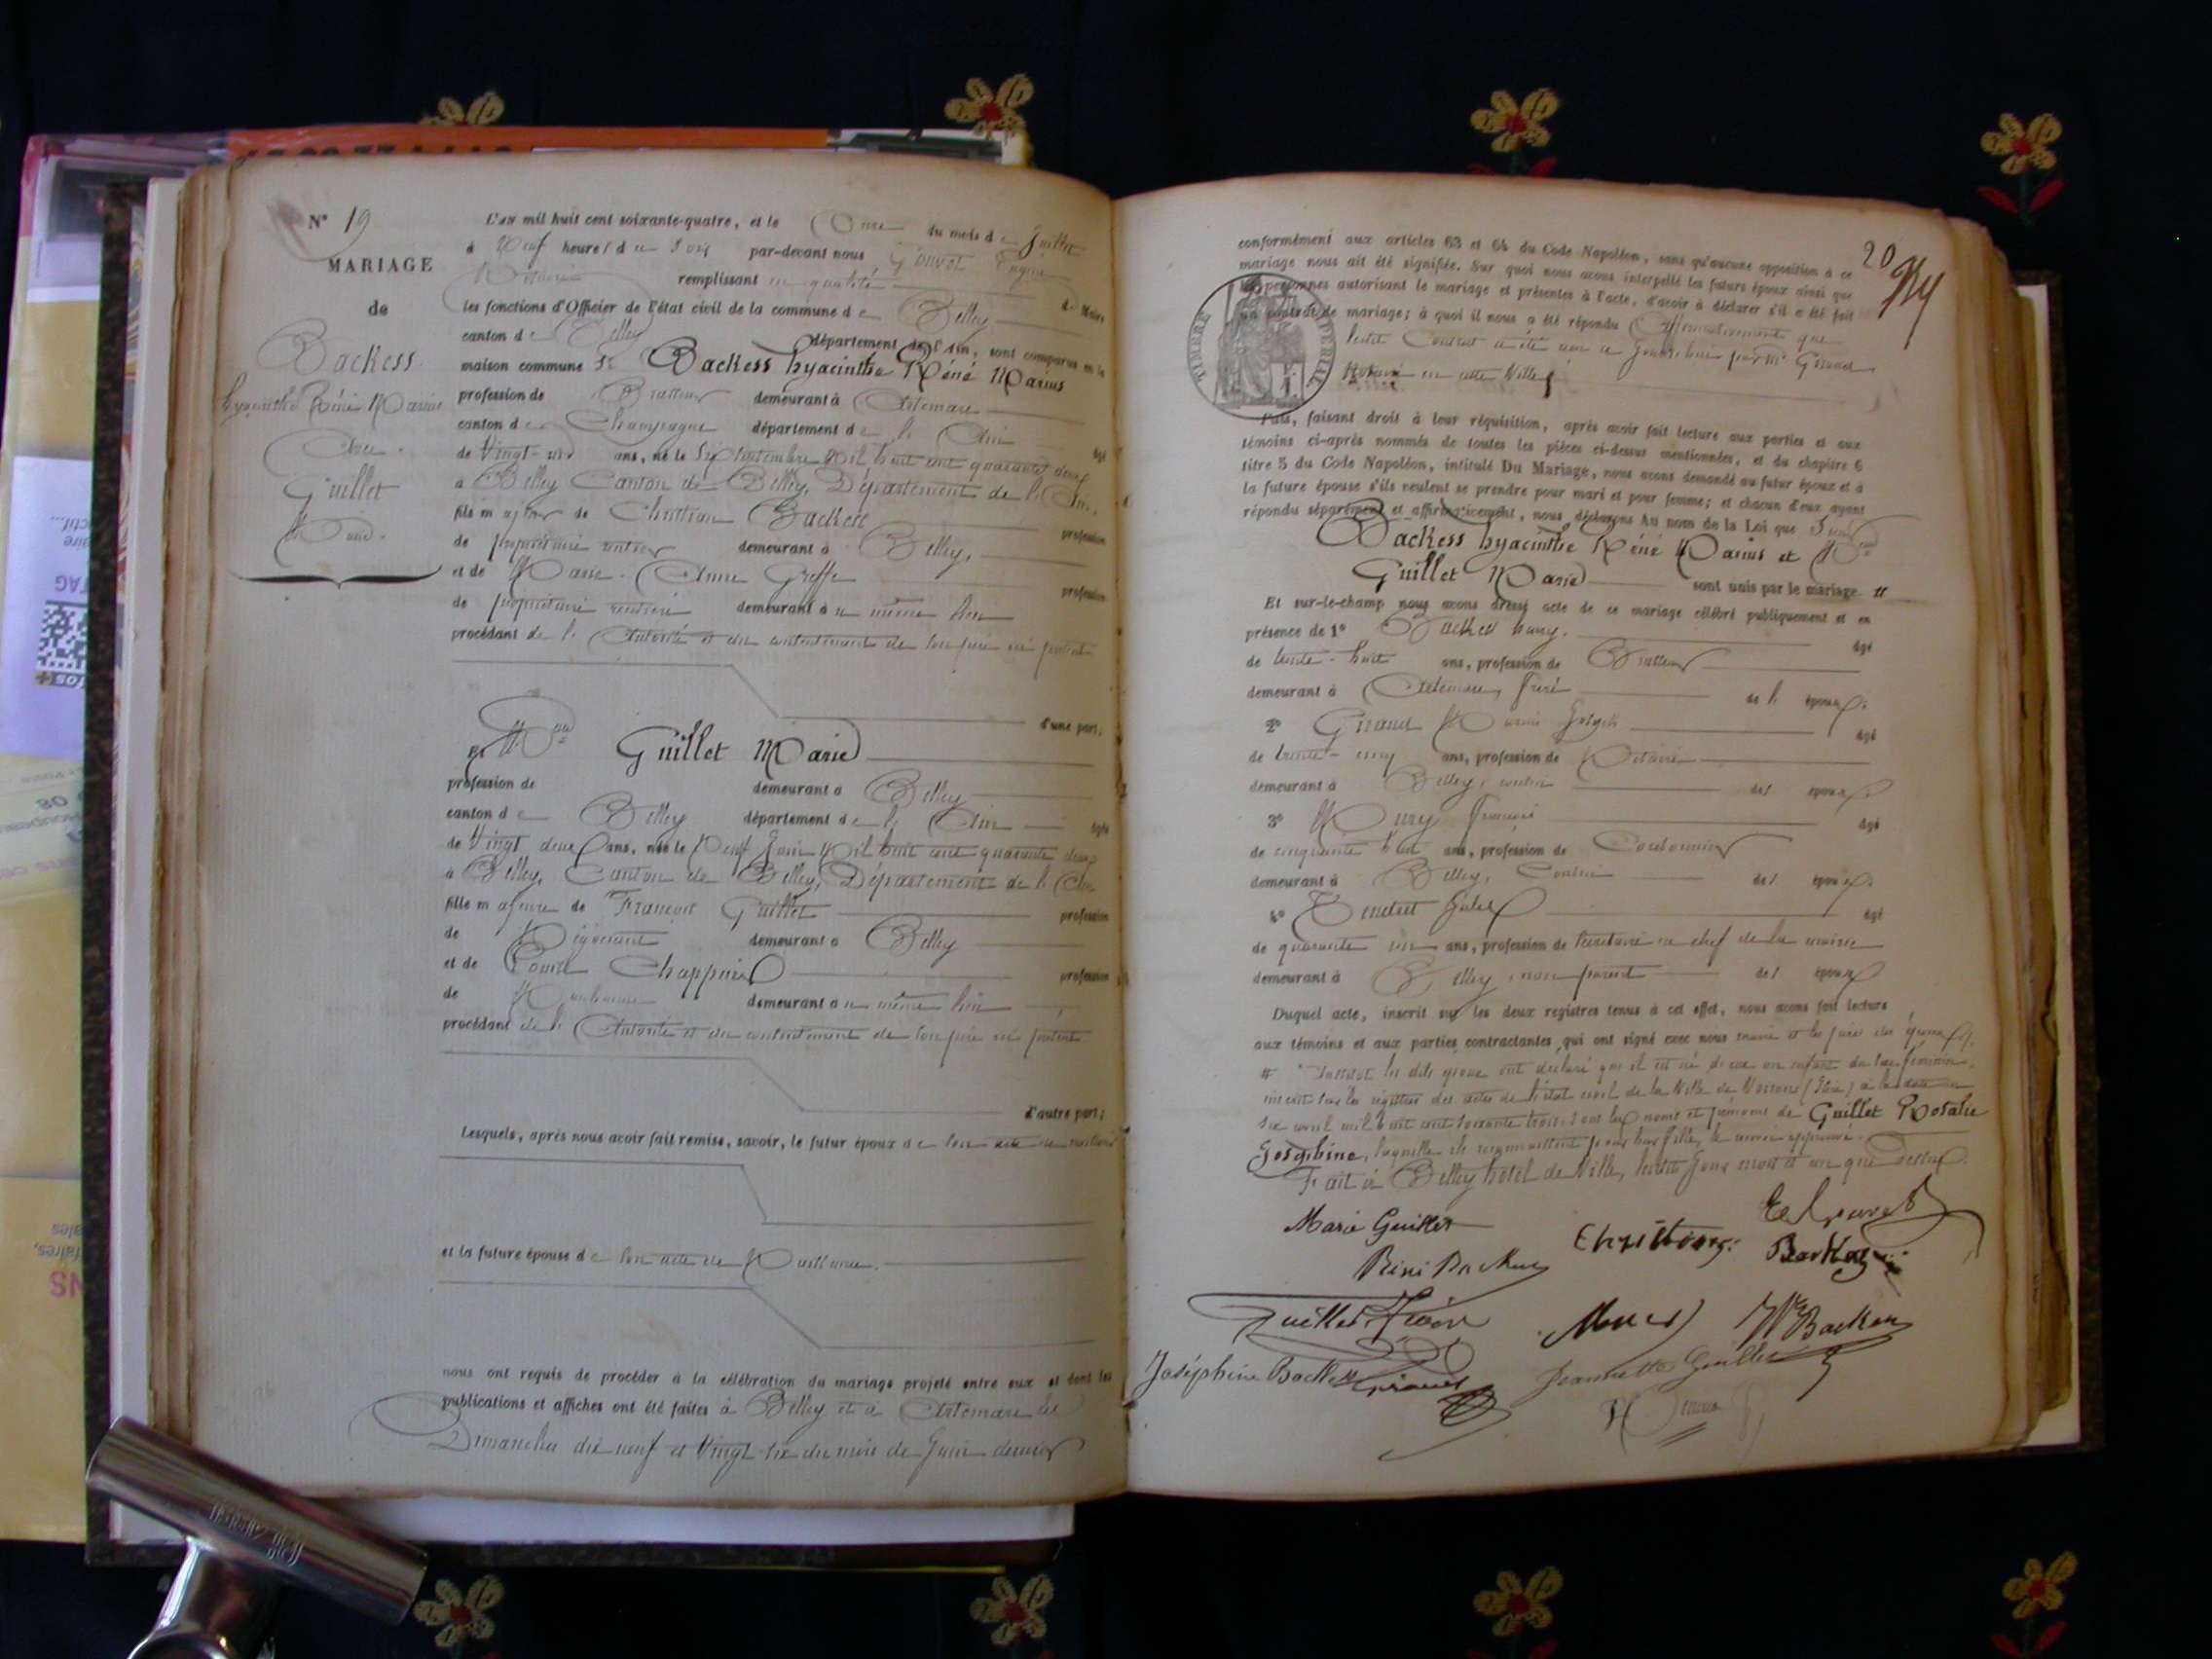 N° 19
MARIAGE
de
Backess
hyacinthe Réné Marius
Avec
Guillet
Marie
L'an mil huit cent soixante-quatre, et le Onze du mois de Juillet
à Neuf heures du Soir par-devant nous Gouvot
Notaire remplissant en qualité de Maire
les fonctions d'Officier de l'état civil de la commune de Belley
canton de Belley département de l'Ain, sont comparus en la
maison commune Sr Backess hyacinthe Réné Marius
profession de Brasseur demeurant à Artemare
canton de Champagne département de l'Ain âgé
de Vingt-un ans, né le Six Septembre Mil huit cent quarante deux
à Belley Canton de Belley, Département de l'Ain,
fils majeur de Christian Backess profession
de propriétaire rentier demeurant à Belley,
et de Marie Anne Greffe profession
de propriétaire rentière demeurant à même lieu
procédant de l'Autorité et du consentement de son père ici présent
d'une part;
Et Guillet Marie
profession de demeurant à Belley
canton de Belley département de l'Ain âgée
de Vingt deux ans, née le Neuf Juin Mil huit cent quarante deux
à Belley, Canton de Belley, Département de l'Ain
fille majeure de François Guillet profession
de Négociant demeurant à Belley
et de Chappuis profession
de demeurant au même lieu
procédant de l'Autorité et du consentement de son père ici présent
d'autre part;
Lesquels, après nous avoir fait remise, savoir, le futur époux de son acte de naissance
et la future épouse de son acte de Naissance.
nous ont requis de procéder à la célébration du mariage projeté entre eux et dont les
publications et affiches ont été faites à Belley et à Artemare les
Dimanches dix neuf et Vingt six du mois de Juin dernier
20
TIMBRE IMPERIAL
conformément aux articles 63 et 64 du Code Napoléon, sans qu'aucune opposition à ce
mariage nous ait été signifiée. Sur quoi nous avons interpellé les futurs époux ainsi que
les personnes autorisant le mariage et présentes à l'acte, d'avoir à déclarer s'il a été fait
un contrat de mariage; à quoi il nous a été répondu Affirmativement que
ledit Contrat a été reçu ce Jourd'hui par Me Giraud
Notaire en cette Ville
Puis, faisant droit à leur réquisition, après avoir fait lecture aux parties et aux
témoins ci-après nommés de toutes les pièces ci-dessus mentionnées, et du chapitre 6
titre 5 du Code Napoléon, intitulé Du Mariage, nous avons demandé au futur époux et à
la future épouse s'ils veulent se prendre pour mari et pour femme; et chacun d'eux ayant
répondu séparément et affirmativement, nous déclarons Au nom de la Loi que
Backess hyacinthe Réné Marius et
Guillet Marie sont unis par le mariage #
Et sur-le-champ nous avons dressé acte de ce mariage célébré publiquement et en
présence de 1° Backess âgé
de trente-huit ans, profession de Brasseur
demeurant à Artemare, frère de l'époux.
2° Giraud Marie Joseph âgé
de trente-cinq ans, profession de Notaire
demeurant à Belley, cousin des époux.
3° François âgé
de cinquante huit ans, profession de Cordonnier
demeurant à Belley, Cousin des époux.
4° Jules âgé
de quarante un ans, profession de Secrétaire en chef de la mairie
demeurant à Belley, non parent des époux
Duquel acte, inscrit sur les deux registres tenus à cet effet, nous avons fait lecture
aux témoins et aux parties contractantes, qui ont signé avec nous maire et les pères des époux.
# les dits époux ont déclaré qu'il est né de eux un enfant du sexe féminin,
inscrit sur les registres des actes de l'état civil de la Ville de Voiron (Isère) à la date du
six avril mil huit cent soixante trois, sous les noms et prénoms de Guillet Rosalie
Joséphine, laquelle ils reconnaissent pour leur fille, le renvoi approuvé.
Fait à Belley hotel de Ville, lesdits Jour mois et an que Dessus.
Marie Guillet
Réné Backess
Christian Backess
Guillet
Backess
Joséphine Backess
Giraud
Jeannette Guillet